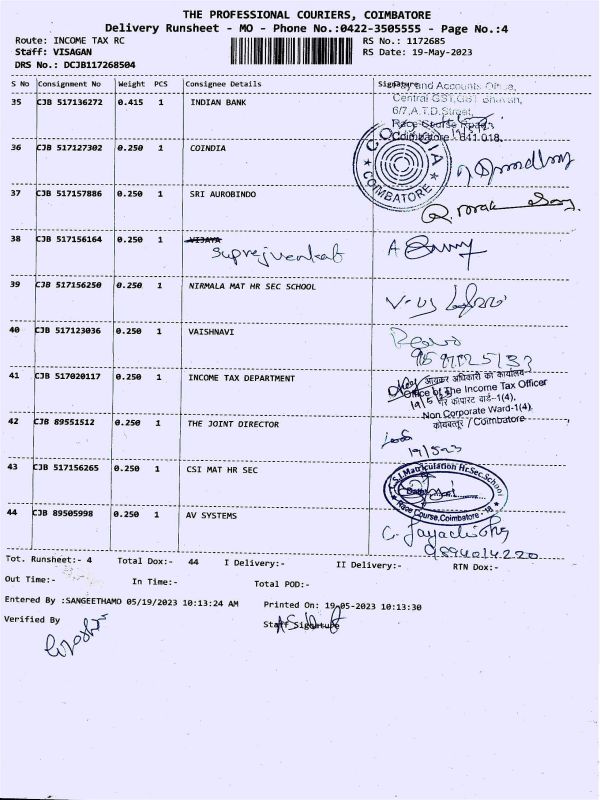 THE PROFESSIONAL COURIERS, COIMBATORE
Delivery Runsheet - MO - Phone No.:0422-3505555 - Page No.:4
Route: INCOME TAX RC RS No.: 1172685
Staff: VISAGAN RS Date: 19-May-2023
DRS No.: DCJB117268504
S No Consignment No Weight PCS Consignee Details Signature
Pay and Accounts Office,
Central GST, GST Bhavan,
6/7, A.T.D. Street,
Race Course Road,
Coimbatore - 641 018.
35 CJB 517136272 0.415 1 INDIAN BANK
36 CJB 517127302 0.250 1 COINDIA
COINDIA
★ COIMBATORE ★
37 CJB 517157886 0.250 1 SRI AUROBINDO
38 CJB 517156164 0.250 1 VIJAYA
39 CJB 517156250 0.250 1 NIRMALA MAT HR SEC SCHOOL
40 CJB 517123036 0.250 1 VAISHNAVI
41 CJB 517020117 0.250 1 INCOME TAX DEPARTMENT
आयकर अधिकारी का कार्यालय
Office of The Income Tax Officer
गैर कॉपरेट वार्ड-1(4),
Non Corporate Ward-1(4),
कोयम्बतूर / Coimbatore
42 CJB 89551512 0.250 1 THE JOINT DIRECTOR
19/5/23
43 CJB 517156265 0.250 1 CSI MAT HR SEC
C.S.I. Matriculation Hr. Sec. School
Race Course, Coimbatore - 18
44 CJB 89505998 0.250 1 AV SYSTEMS
9894014220
Tot. Runsheet:- 4 Total Dox:- 44 I Delivery:- II Delivery:- RTN Dox:-
Out Time:- In Time:- Total POD:-
Entered By :SANGEETHAMO 05/19/2023 10:13:24 AM Printed On: 19-05-2023 10:13:30
Verified By Staff Signature